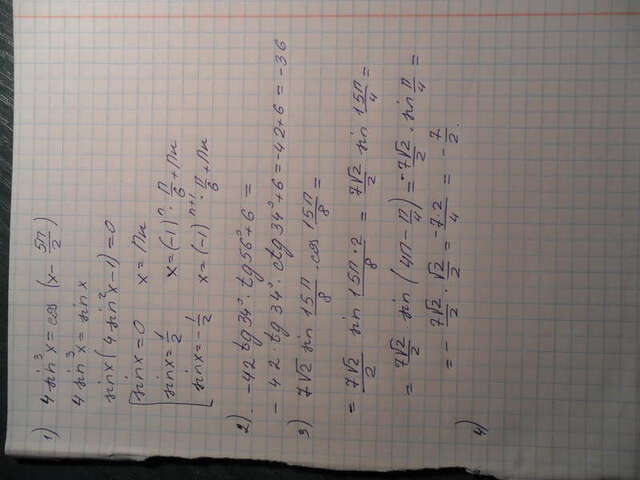 1) 4 sin³x = cos (x - 5π/2)
4 sin³x = sin x
sin x (4 sin²x - 1) = 0
[ sin x = 0   x = πn
sin x = 1/2   x = (-1)ⁿ · π/6 + πn
sin x = -1/2   x = (-1)ⁿ⁺¹ · π/6 + πn
2) -42 tg 34° · tg 56° + 6 =
-42 tg 34° · ctg 34° + 6 = -42 + 6 = -36
3) 7√2 sin 15π/8 · cos 15π/8 =
= 7√2/2 sin 15π·2/8 = 7√2/2 sin 15π/4 =
= 7√2/2 sin (4π - π/4) = -7√2/2 · sin π/4 =
= - 7√2/2 · √2/2 = -7·2/4 = - 7/2.
4)